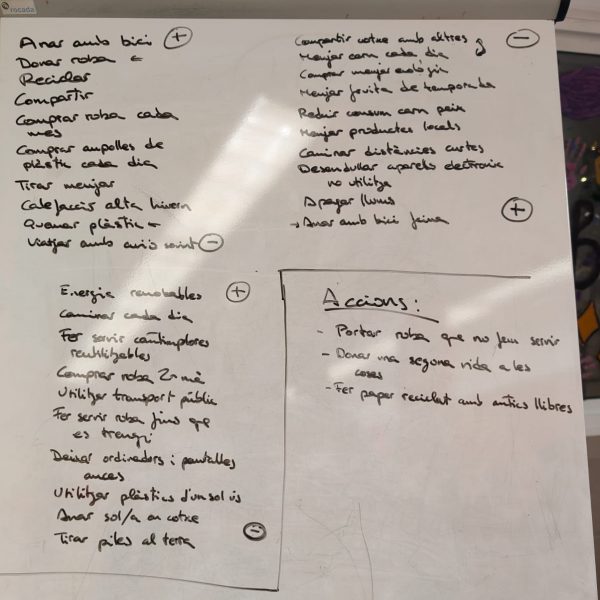 rocada
Anar amb bici +
Donar roba ←
Reciclar
Compartir
Comprar roba cada
mes
Comprar ampolles de
plàstic cada dia
Tirar menjar
Calefacció alta hivern
Quemar plàstic ←
Viatjar amb avió sovint -
Compartir cotxe amb altres -
Menjar carn cada dia
Comprar menjar ecològic
Menjar fruita de temporada
Reduir consum carn peix
Menjar productes locals
Caminar distàncies curtes
Desendollar aparells electrònic
no utilitza
Apagar llums
+
→ Anar amb bici feina
Energia renobables +
Caminar cada dia
Fer servir cantimplores
reutilitzables
Comprar roba 2ª mà
Utilitzar transport públic
Fer servir roba fins que
es trenqui
Deixar ordinadors i pantalles
ences
Utilitzar plàstics d'un sol ús
Anar sol/a en cotxe
Tirar piles al terra -
Accions:
- Portar roba que no fem servir
- Donar una segona vida a les
coses
- Fer paper reciclat amb antics llibres